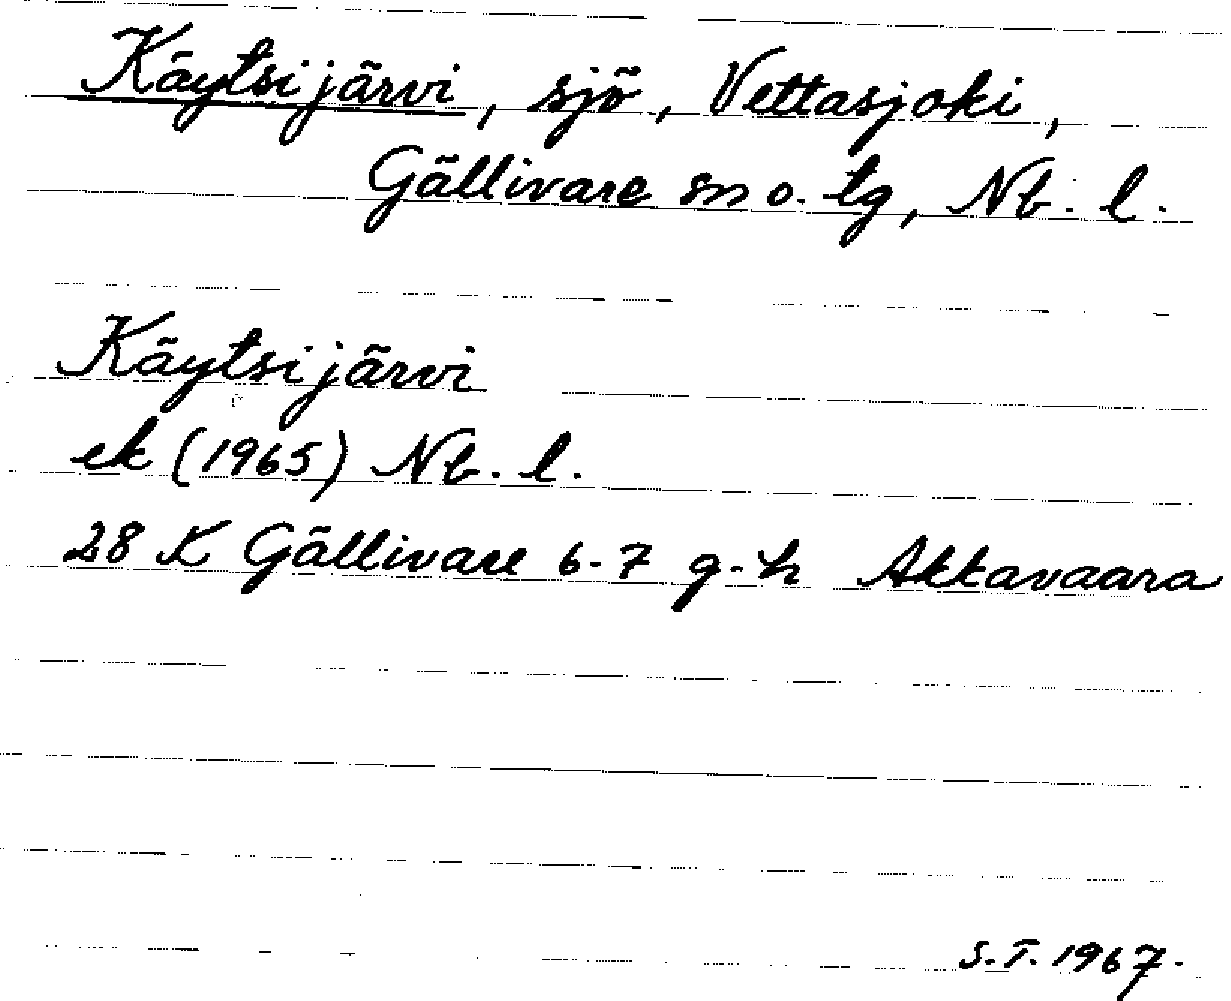 Käytsijärvi, sjö, Vettasjoki,
Gällivare sn o. tg, Nb. l.
Käytsijärvi
ek (1965) Nb. l.
28 K Gällivare 6-7 g-h Akkavaara
S.T. 1967.